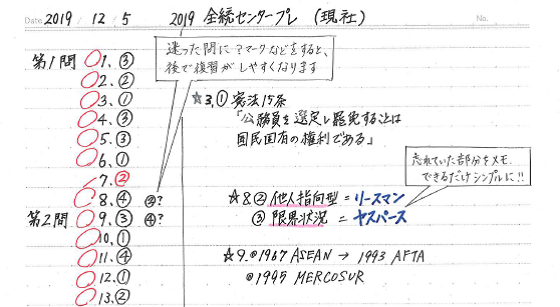 Date 2019 / 12 / 5 2019 全統センタープレ (現社) No.
違った問に?マークなどをすると、
後で復習がしやすくなります
第1問 1, ③
2, ②
3, ①
4, ③
5, ③
6, ①
7, ②
8, ④ ②?
第2問 9, ③ ④?
10, ①
11, ④
12, ①
13, ②
☆3, ① 憲法15条
「公務員を選定し罷免することは
国民固有の権利である」
忘れていた部分をメモ。
できるだけシンプルに!!
☆8 ② 他人指向型 = リースマン
③ 限界状況 = ヤスパース
☆9. ⓐ 1967 ASEAN → 1993 AFTA
ⓐ 1995 MERCOSUR